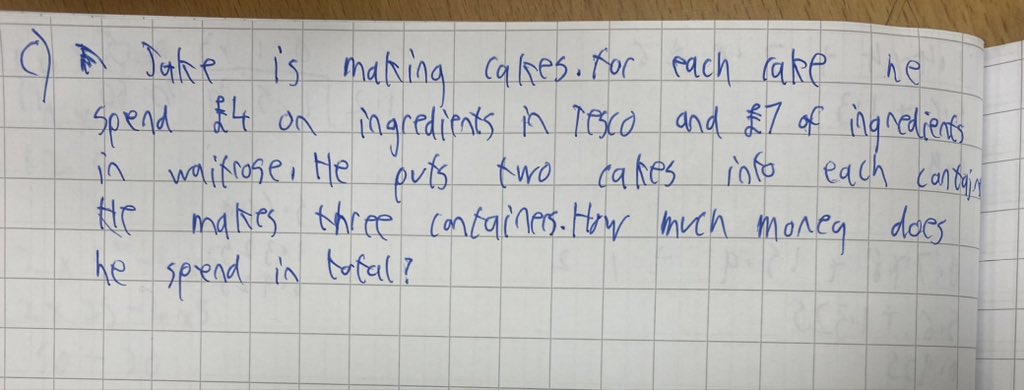 c) Jake is making cakes. for each cake he
spend £4 on ingredients in Tesco and £7 of ingredients
in waitrose. He puts two cakes into each contain
He makes three containers. How much money does
he spend in total?